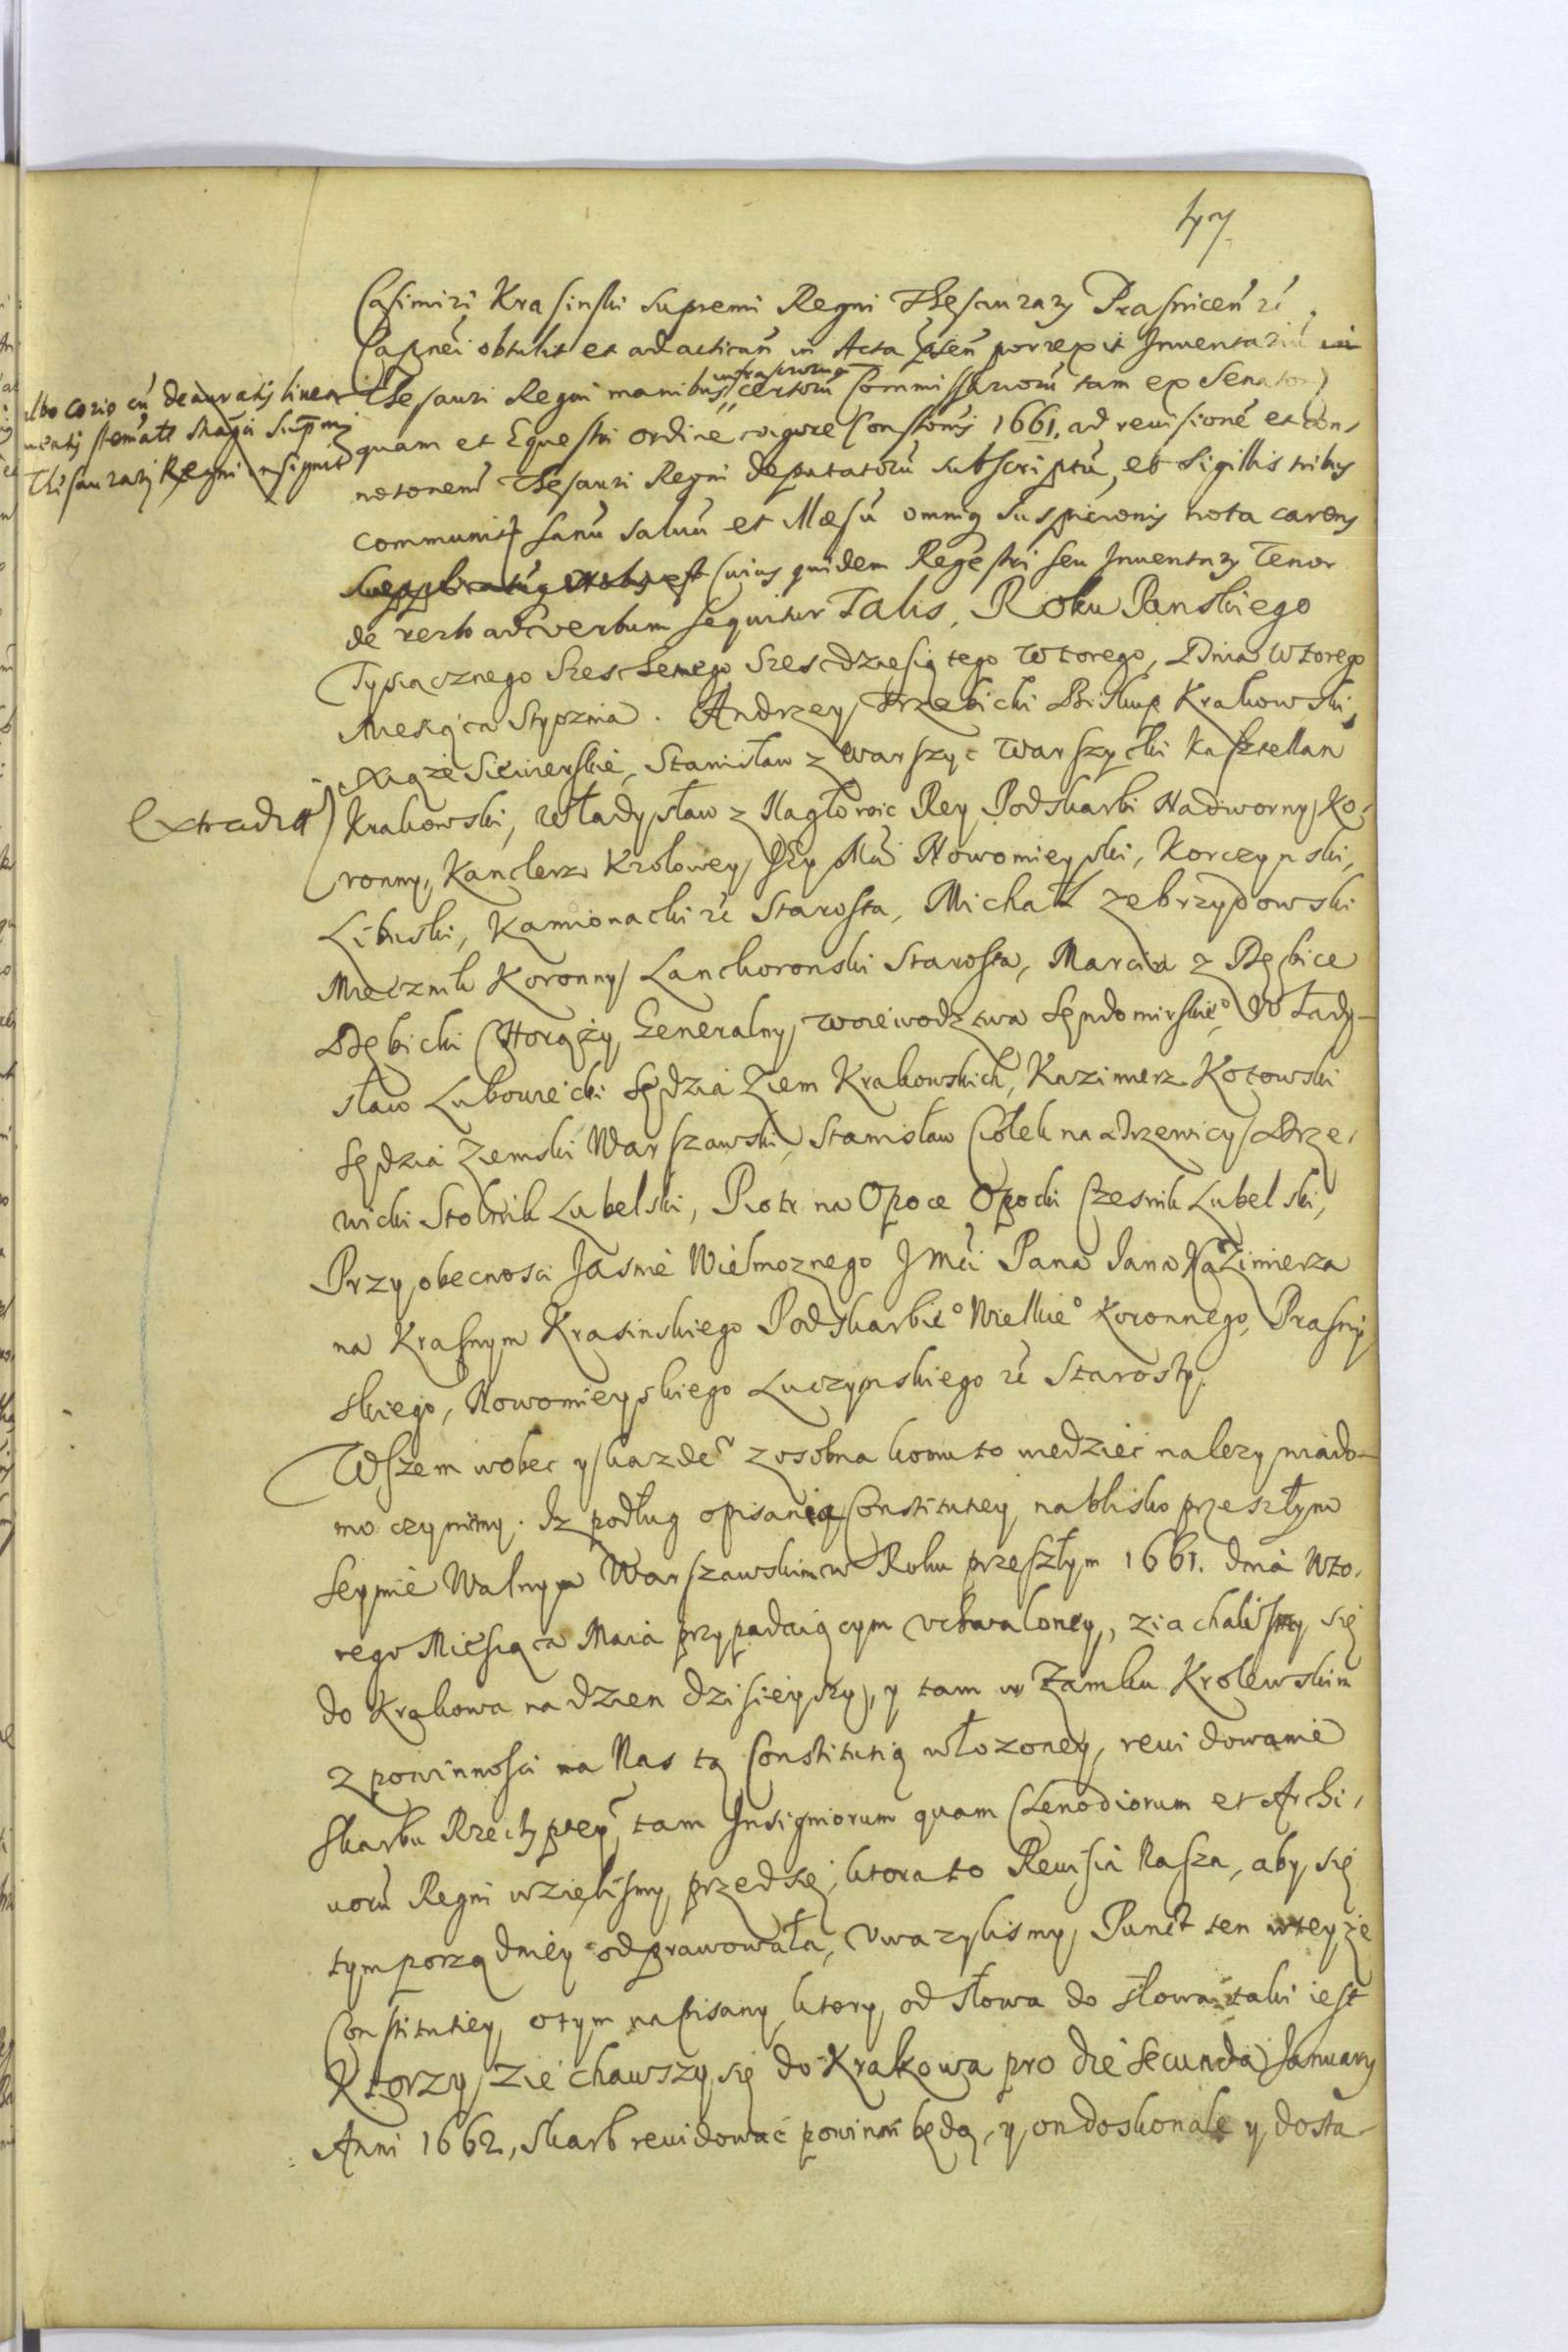 47
Casimiri Krasinski Supremi Regni Thesaurarÿ Prasnicen̄ zć
Capnei obtulit et ad acticand̄ in Acta p̄sen̄ porrexit Inventariū
Thesauri Regni manibus infrascriptorum certorū Commissariorū tam ex Senatorio
quam et Equestri ordine vigore Constōnis 1661. ad revisionē et con-
notōnem Thesauri Regni deputatorū subscriptū, et Sigillis tribus
communitū sanū salvū et illæsū omniq suspicionis nota carens
Cuius quidem Regestri seu Inventarÿ Tenor
de verbo ad verbum sequitur Talis, Roku Panskiego
Tysiącznego Szescsetnego Szescdziesiątego Wtorego, Dnia Wtorego
Miesiąca Stycznia. Andrzey Trzebicki Biskup Krakowski,
Xiąże Siewierskie, Stanisław z Warszyc Warszycki Kasztellan
Krakowski, Władysław z Nagłowic Rey Podskarbi Nadworny Ko-
ronny, Kanclerz Krolowey Jey Mći Nowomieyski, Korczynski,
Libuski, Kamionacki zć Starosta, Michał Zebrzydowski
Miecznik Koronny Lanckoronski Starosta, Marcin z Dębice
Dębicki Chorąży Generalny woiewodztwa Sendomirskieº, Włady-
sław Lubowiecki Sędzia Ziem Krakowskich, Kazimierz Kotowski
Sędzia Ziemski Warszawski, Stanisław Ciołek na Drzewicy Drze-
wicki Stolnik Lubelski, Piotr na Opoce Opocki Czesnik Lubelski,
Przy obecnosci Jasnie Wielmoznego J Mći Pana Jana Kazimierza
na Krasnym Krasinskiego Podskarbieº Wielkieº Koronnego, Prasny
skiego, Nowomieyskiego Luczynskiego zć Starosty.
Wszem wobec y kazdeº zosobna komu to wiedziec nalezy wiado-
mo czynimy. Iz podług opisania Constitutiey na blisko przeszłym
Seymie Walnym Warszawskim w Roku przeszłym 1661. dnia Wto-
rego Miesiąca Maia przypadaiącym uchwaloney, ziachalismy się
do Krakowa na dzien dzisieyszy, y tam w Zamku Krolewskim
z powinnosci na Nas tą Constitutią włozoney, reuidowanie
Skarbu Rzeczyptey tam Insigniorum quam Clenodiorum et Archi-
uorū Regni wzielismy przedsię, ktora to Reuisia Nasza, aby się
tym porządniey odprawowała, Uwazylismy Punct ten wteyże
Constitutiey, otym napisany ktory, od słowa do słowa taki iest
Ktorzy Ziechawszy się do Krakowa pro die secunda January
Anni 1662, Skarb reuidować powinni będą, y on doskonale y dosta-
Albo corio cū deauratis linea-
mentis stemate Magci Supremi
Thesaurarÿ Regni insignit
Extradit